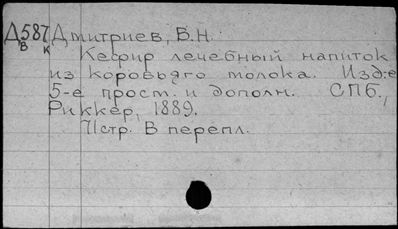 Д587 Дмитриев, В.Н.
в к
Кефир лечебный напиток
из коровьяго молока. Изд-е
5-е прост. и дополн. СПб.,
Риккер, 1889.
71стр. В перепл.